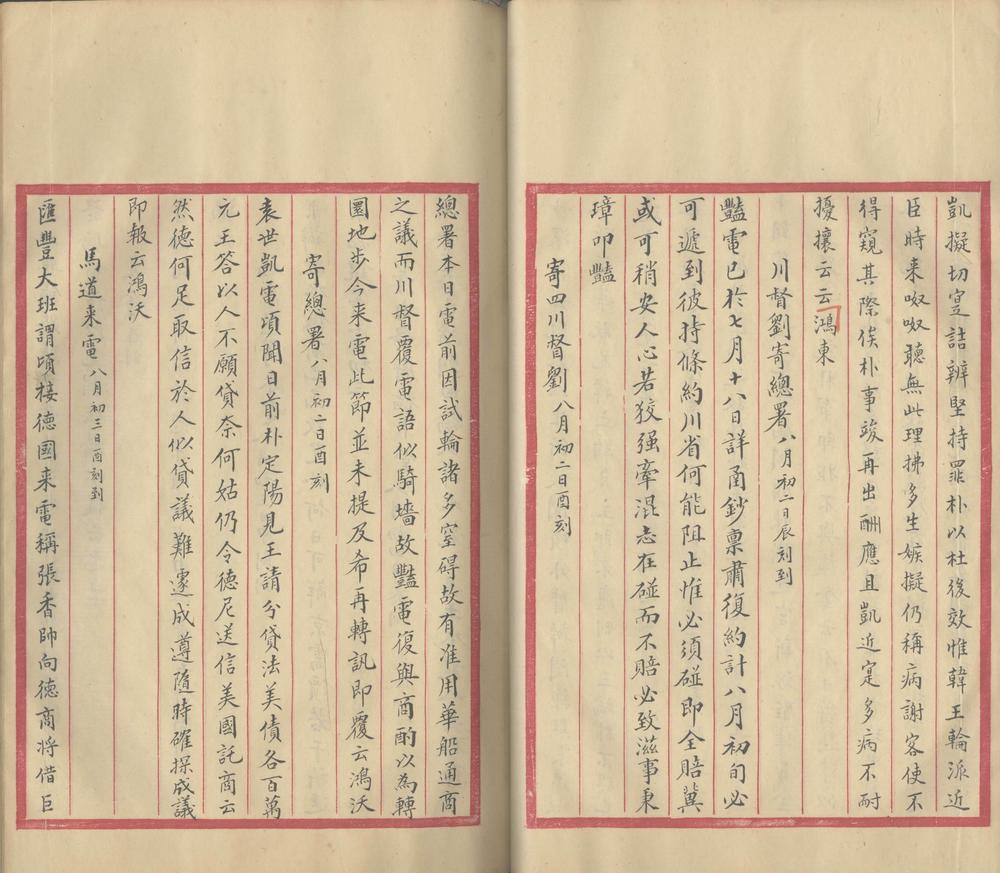 凱擬切寔詰辨堅持罪朴以杜後效惟韓王輪派近
臣時来呶呶聽無此理拂多生嫉擬仍稱病謝客使不
得窺其際俟朴事竣再出酬應且凱近寔多病不耐
擾攘云云鴻東
川督劉寄總署八月初二日辰刻到
豔電已於七月十八日詳函鈔稟肅復約計八月初旬必
可遞到彼持條約川省何能阻止惟必須碰即全賠冀
或可稍安人心若狡强牽混志在碰而不賠必致滋事秉
璋叩豔
寄四川督劉八月初二日酉刻
總署本日電前因試輪諸多窒碍故有准用華船通商
之議而川督覆電語似騎墻故豔電復與商酌以為轉
圜地步今来電此節並未提及希再轉訊即覆云鴻沃
寄總署八月初二日酉刻
袁世凱電頃聞日前朴定陽見王請分貸法美債各百萬
元王答以人不願貸奈何姑仍令德尼送信美國託商云
然德何足取信於人似貸議難遽成遵隨時確探成議
即報云鴻沃
馬道来電八月初三日酉刻到
匯豐大班謂頃接德國来電稱張香帥向德商将借巨